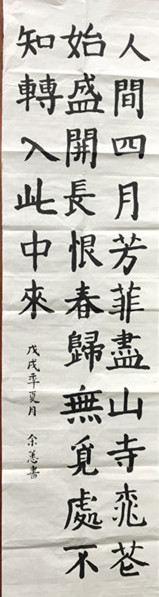 人間四月芳菲盡山寺桃花
始盛開長恨春歸無覓處不
知轉入此中來
戊戌年夏月 余 書